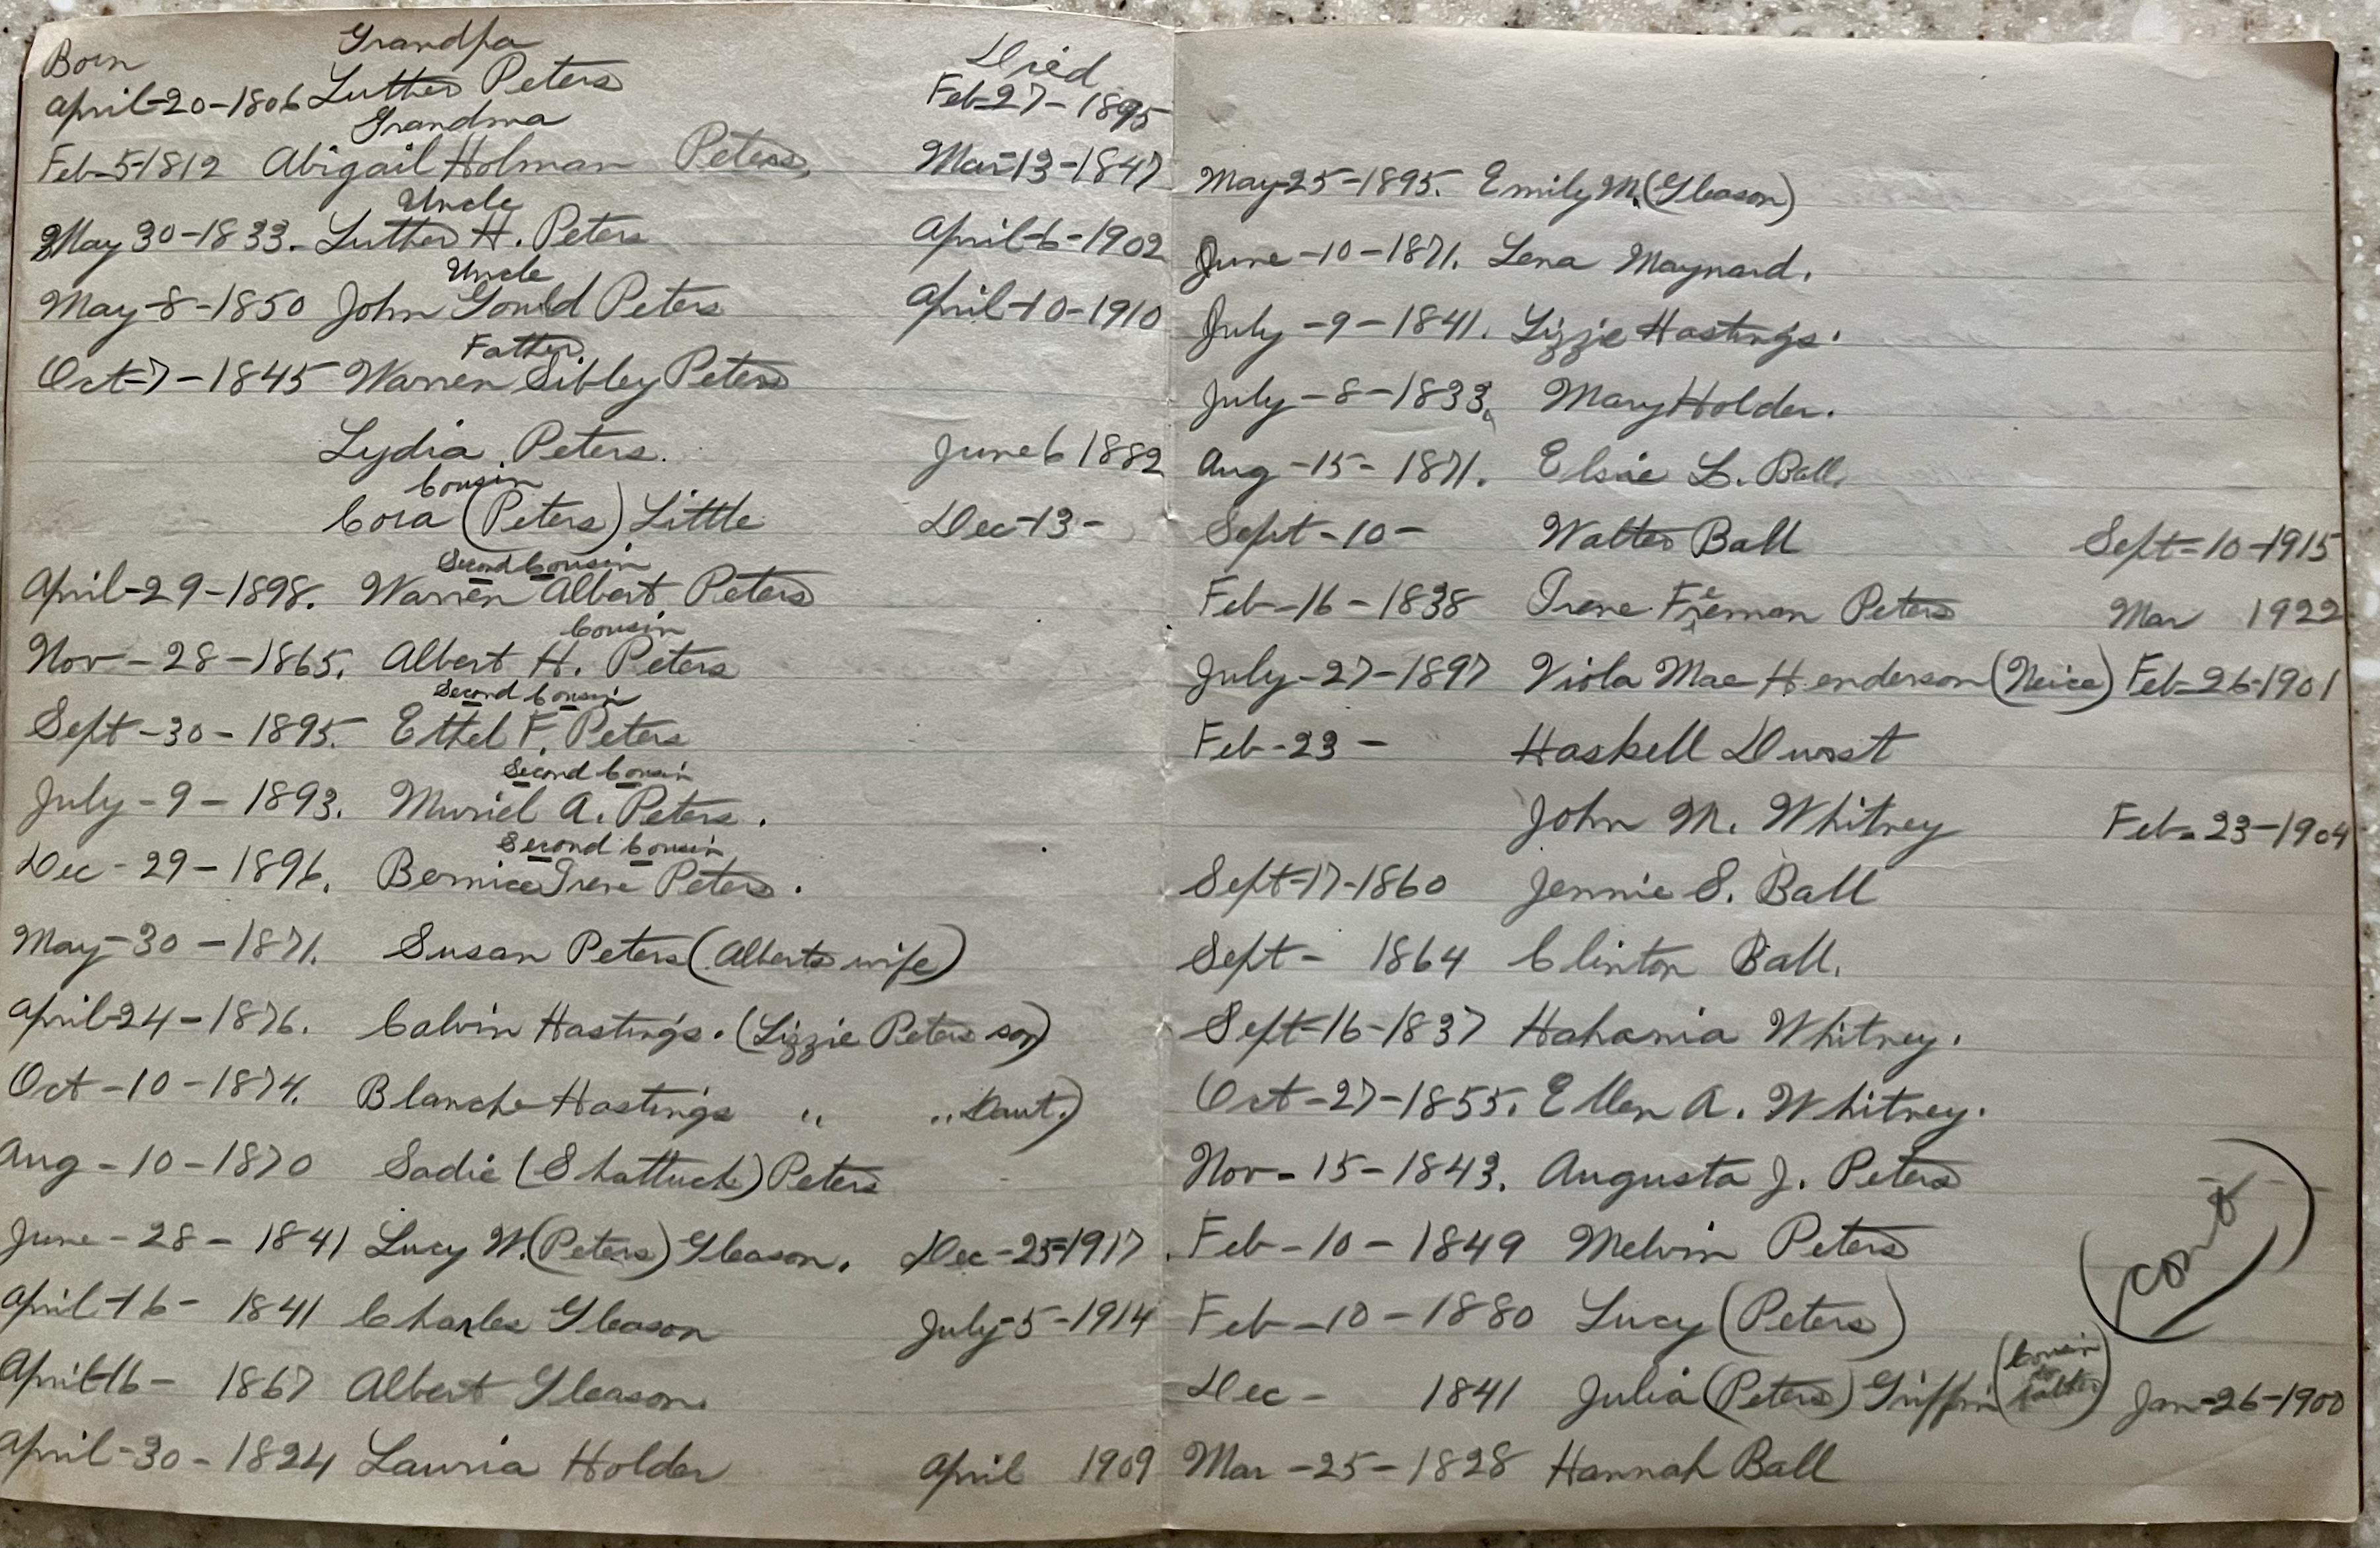 Born Grandpa Died
April-20-1806 Luther Peters Feb-27-1895
Grandma
Feb-5-1812 Abigail Holman Peters, Mar-13-1847
Uncle
May 30-1833. Luther H. Peters April-6-1902
Uncle
May-8-1850 John Gould Peters April-10-1910
Father
Oct-7-1845 Warren Sibley Peters
Lydia Peters. June 6 1882
Cousin
Cora (Peters) Little Dec-13-
Second Cousin
April-29-1898. Warren Albert Peters
Cousin
Nov-28-1865. Albert H. Peters
Second Cousin
Sept-30-1895. Ethel F. Peters
Second Cousin
July-9-1893. Muriel A. Peters.
Second Cousin
Dec-29-1896. Bernice Irene Peters.
May-30-1871. Susan Peters (Alberts wife)
April-24-1876. Calvin Hastings. (Lizzie Peters son)
Oct-10-1874. Blanche Hastings " " Daut.)
Aug-10-1870 Sadie (Shattuck) Peters
June-28-1841 Lucy W. (Peters) Gleason. Dec-25-1917
April-16-1841 Charles Gleason July-5-1914
April-16-1867 Albert Gleason.
April-30-1824 Lauria Holder April 1909
May-25-1895. Emily M. (Gleason)
June-10-1871. Lena Maynard.
July-9-1841. Lizzie Hastings.
July-8-1833. Mary Holder.
Aug-15-1871. Elsie L. Ball.
Sept-10- Walter Ball Sept-10-1915
Feb-16-1838 Irene Freeman Peters Mar 1922
July-27-1897 Viola Mae Henderson (Neice) Feb-26-1901
Feb-23- Haskell Durst
John M. Whitney Feb-23-1904
Sept-17-1860 Jennie S. Ball
Sept- 1864 Clinton Ball.
Sept-16-1837 Hahania Whitney.
Oct-27-1855. Ellen A. Whitney.
Nov-15-1843. Augusta J. Peters
Feb-10-1849 Melvin Peters
Feb-10-1880 Lucy (Peters)
(con't)
Dec- 1841 Julia (Peters) Griffin (Cousin to father) Jan-26-1900
Mar-25-1828 Hannah Ball